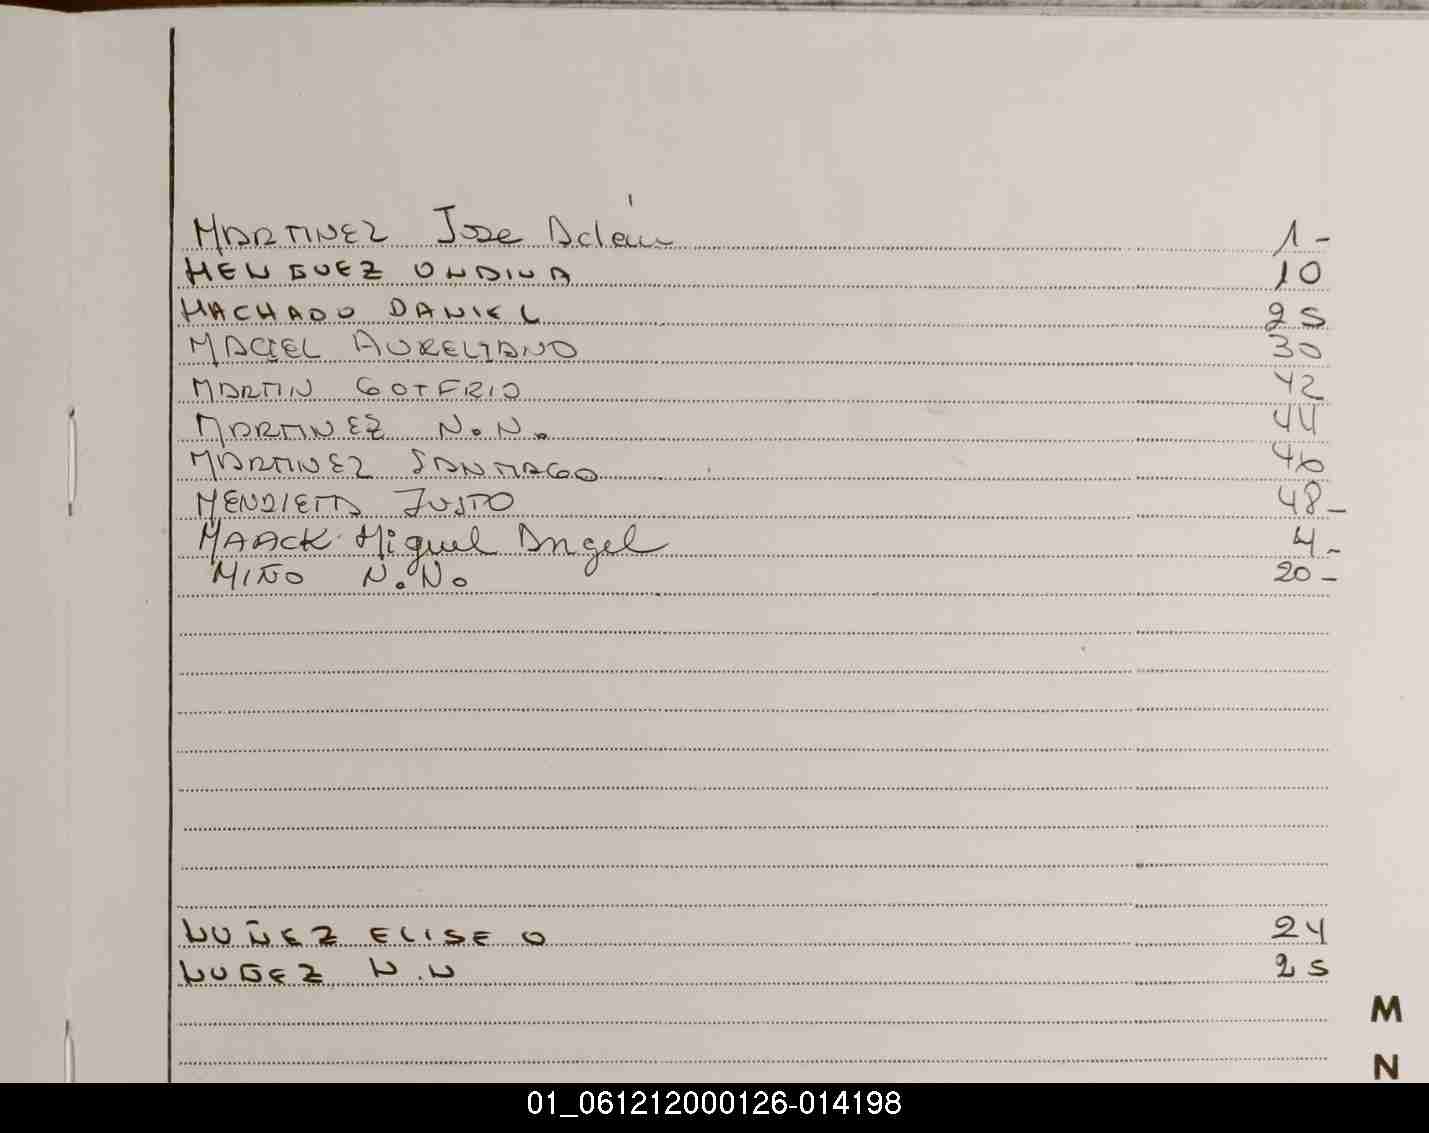 MARTINEZ Jose Adán 1-
MENGUEZ ONDINA 10
MACHADO DANIEL 25
MACIEL AURELIANO 30
MARTIN GOTFRID 42
MARTINEZ N.N. 44
MARTINEZ SANTIAGO 46
MENDIETA JUSTO 48-
MAACK Miguel Angel 4-
MIÑO N.N. 20-
NUÑEZ ELISEO 24
NUÑEZ N.N 25
M
N
01_061212000126-014198